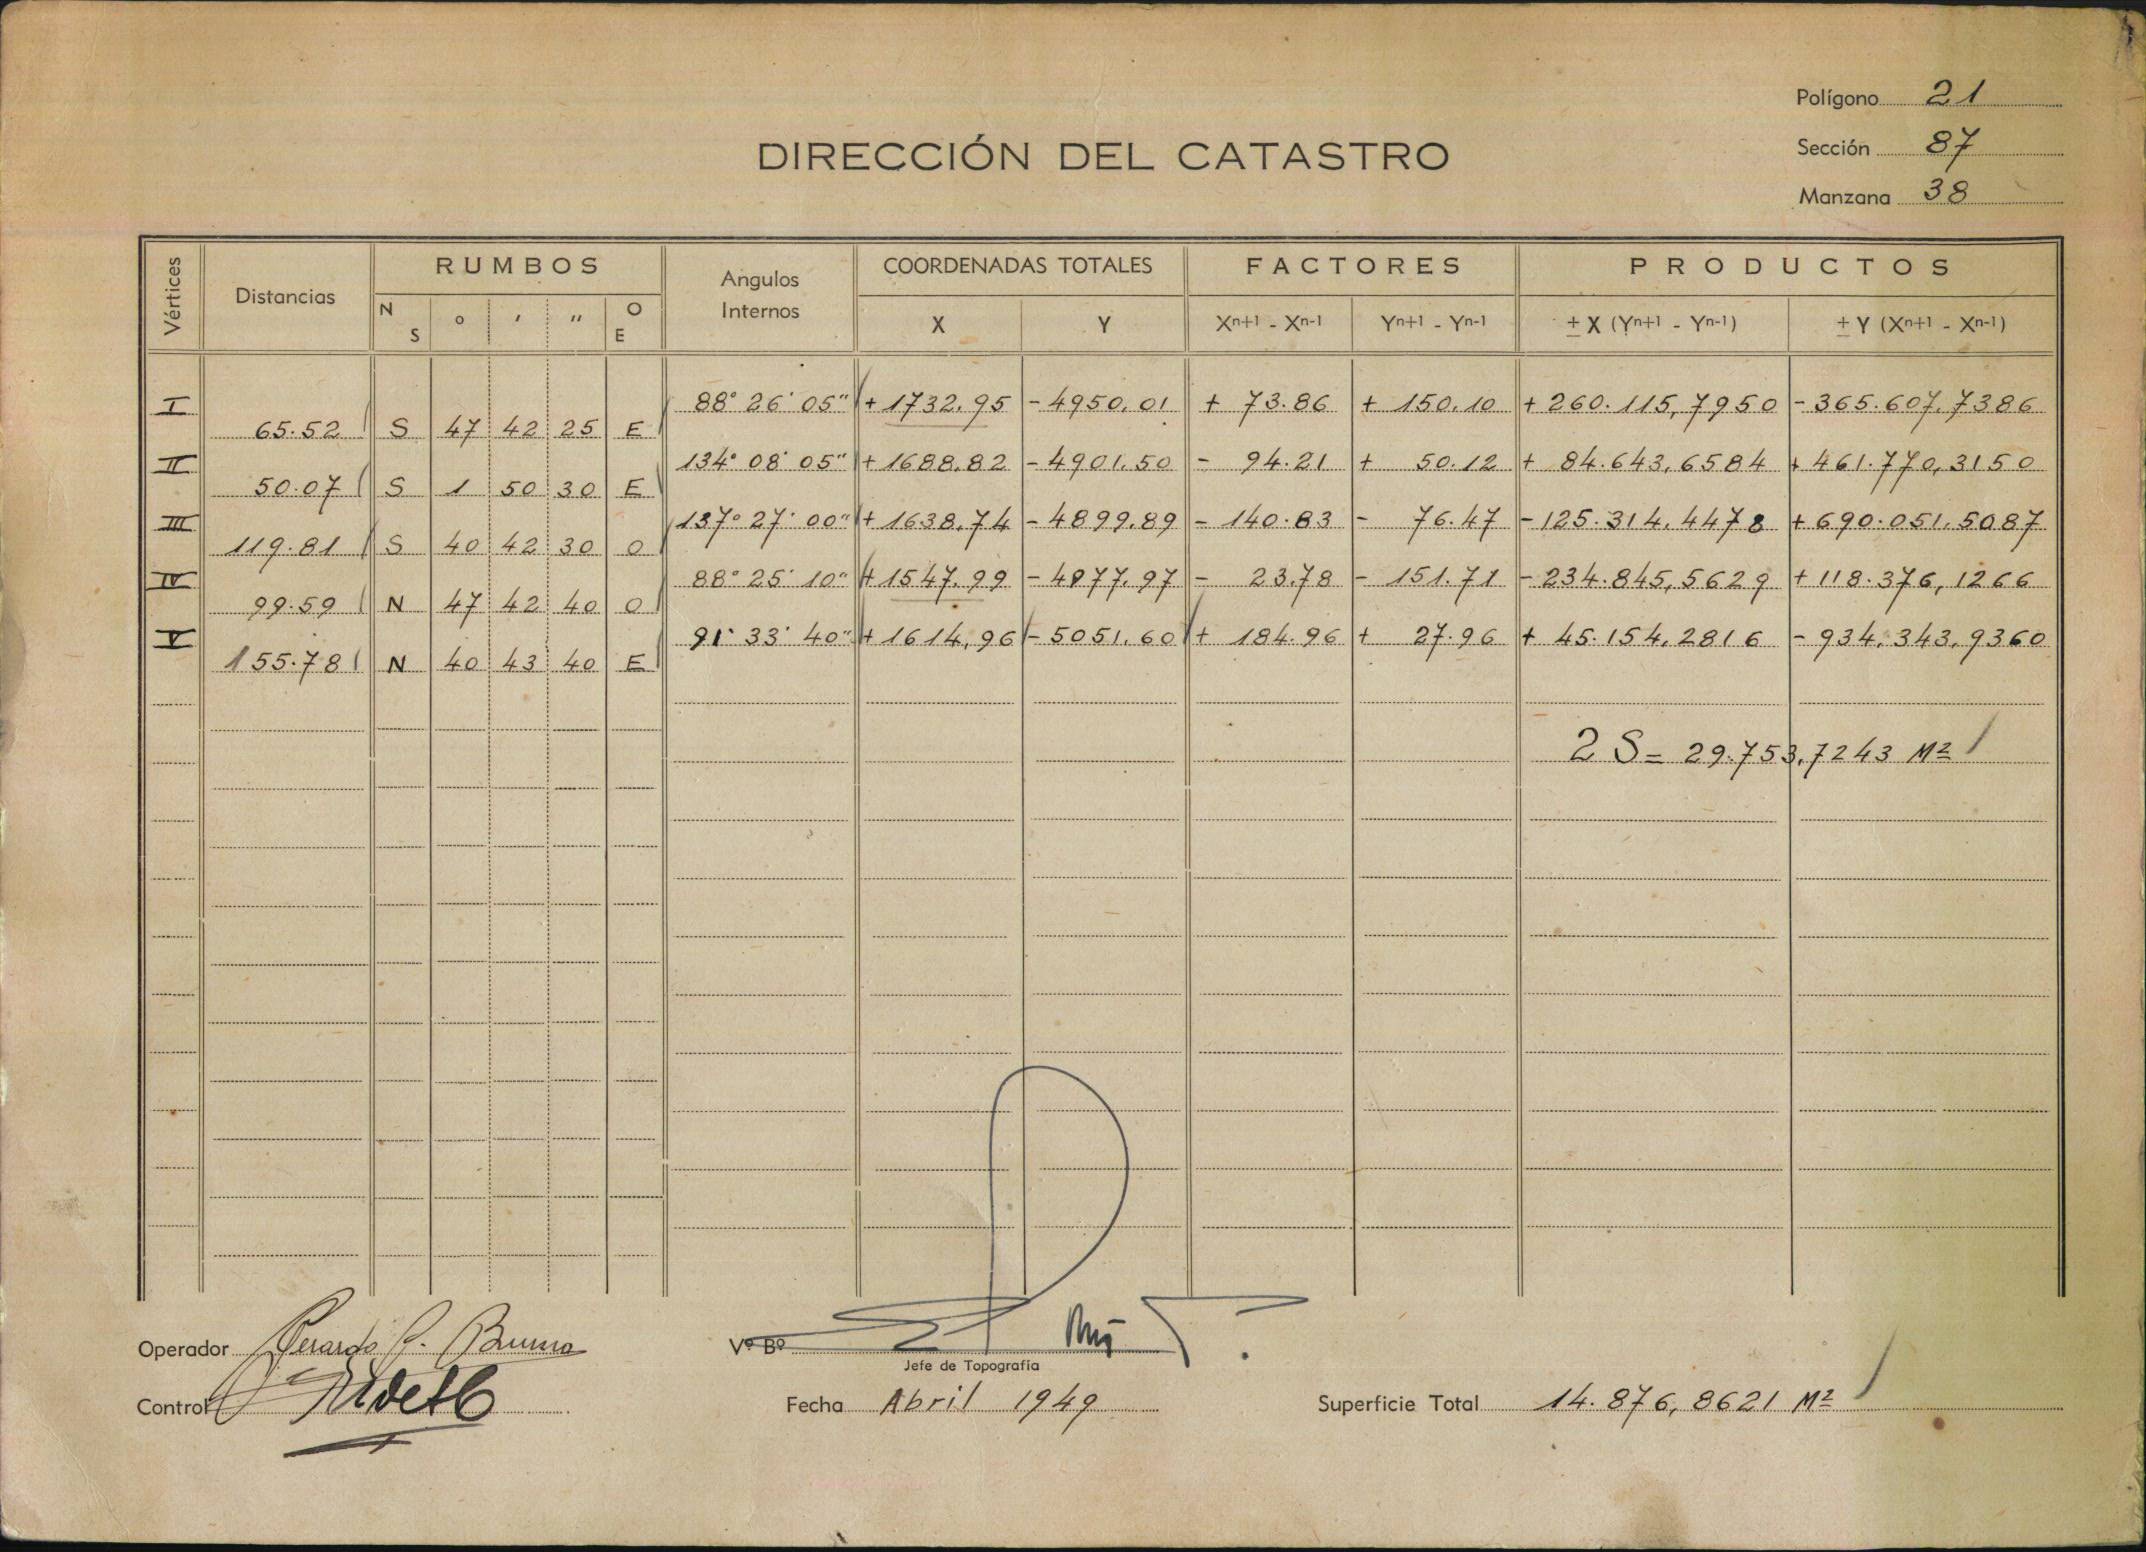 Polígono 21
Sección 87
Manzana 38
DIRECCIÓN DEL CATASTRO
Vértices Distancias RUMBOS Angulos Internos COORDENADAS TOTALES FACTORES PRODUCTOS
N S ° ' " O E X Y Xn+1 - Xn-1 Yn+1 - Yn-1 ± X (Yn+1 - Yn-1) ± Y (Xn+1 - Xn-1)
I 88° 26' 05" + 1732.95 - 4950.01 + 73.86 + 150.10 + 260.115,7950 - 365.607,7386
65.52 S 47 42 25 E
II 134° 08' 05" + 1688.82 - 4901.50 - 94.21 + 50.12 + 84.643,6584 + 461.770,3150
50.07 S 1 50 30 E
III 137° 27' 00" + 1638,74 - 4899.89 - 140.83 - 76.47 - 125.314,4478 + 690.051,5087
119.81 S 40 42 30 O
IV 88° 25' 10" + 1547.99 - 4977,97 - 23.78 - 151.71 - 234.845,5629 + 118.376,1266
99.59 N 47 42 40 O
V 91° 33' 40" + 1614,96 - 5051.60 + 184.96 + 27.96 + 45.154,2816 - 934.343,9360
155.78 N 40 43 40 E
2 S = 29.753,7243 M²
Operador Gerardo C. Bruno
Vº Bº
Jefe de Topografía
Control
Fecha Abril 1949
Superficie Total 14.876,8621 M²